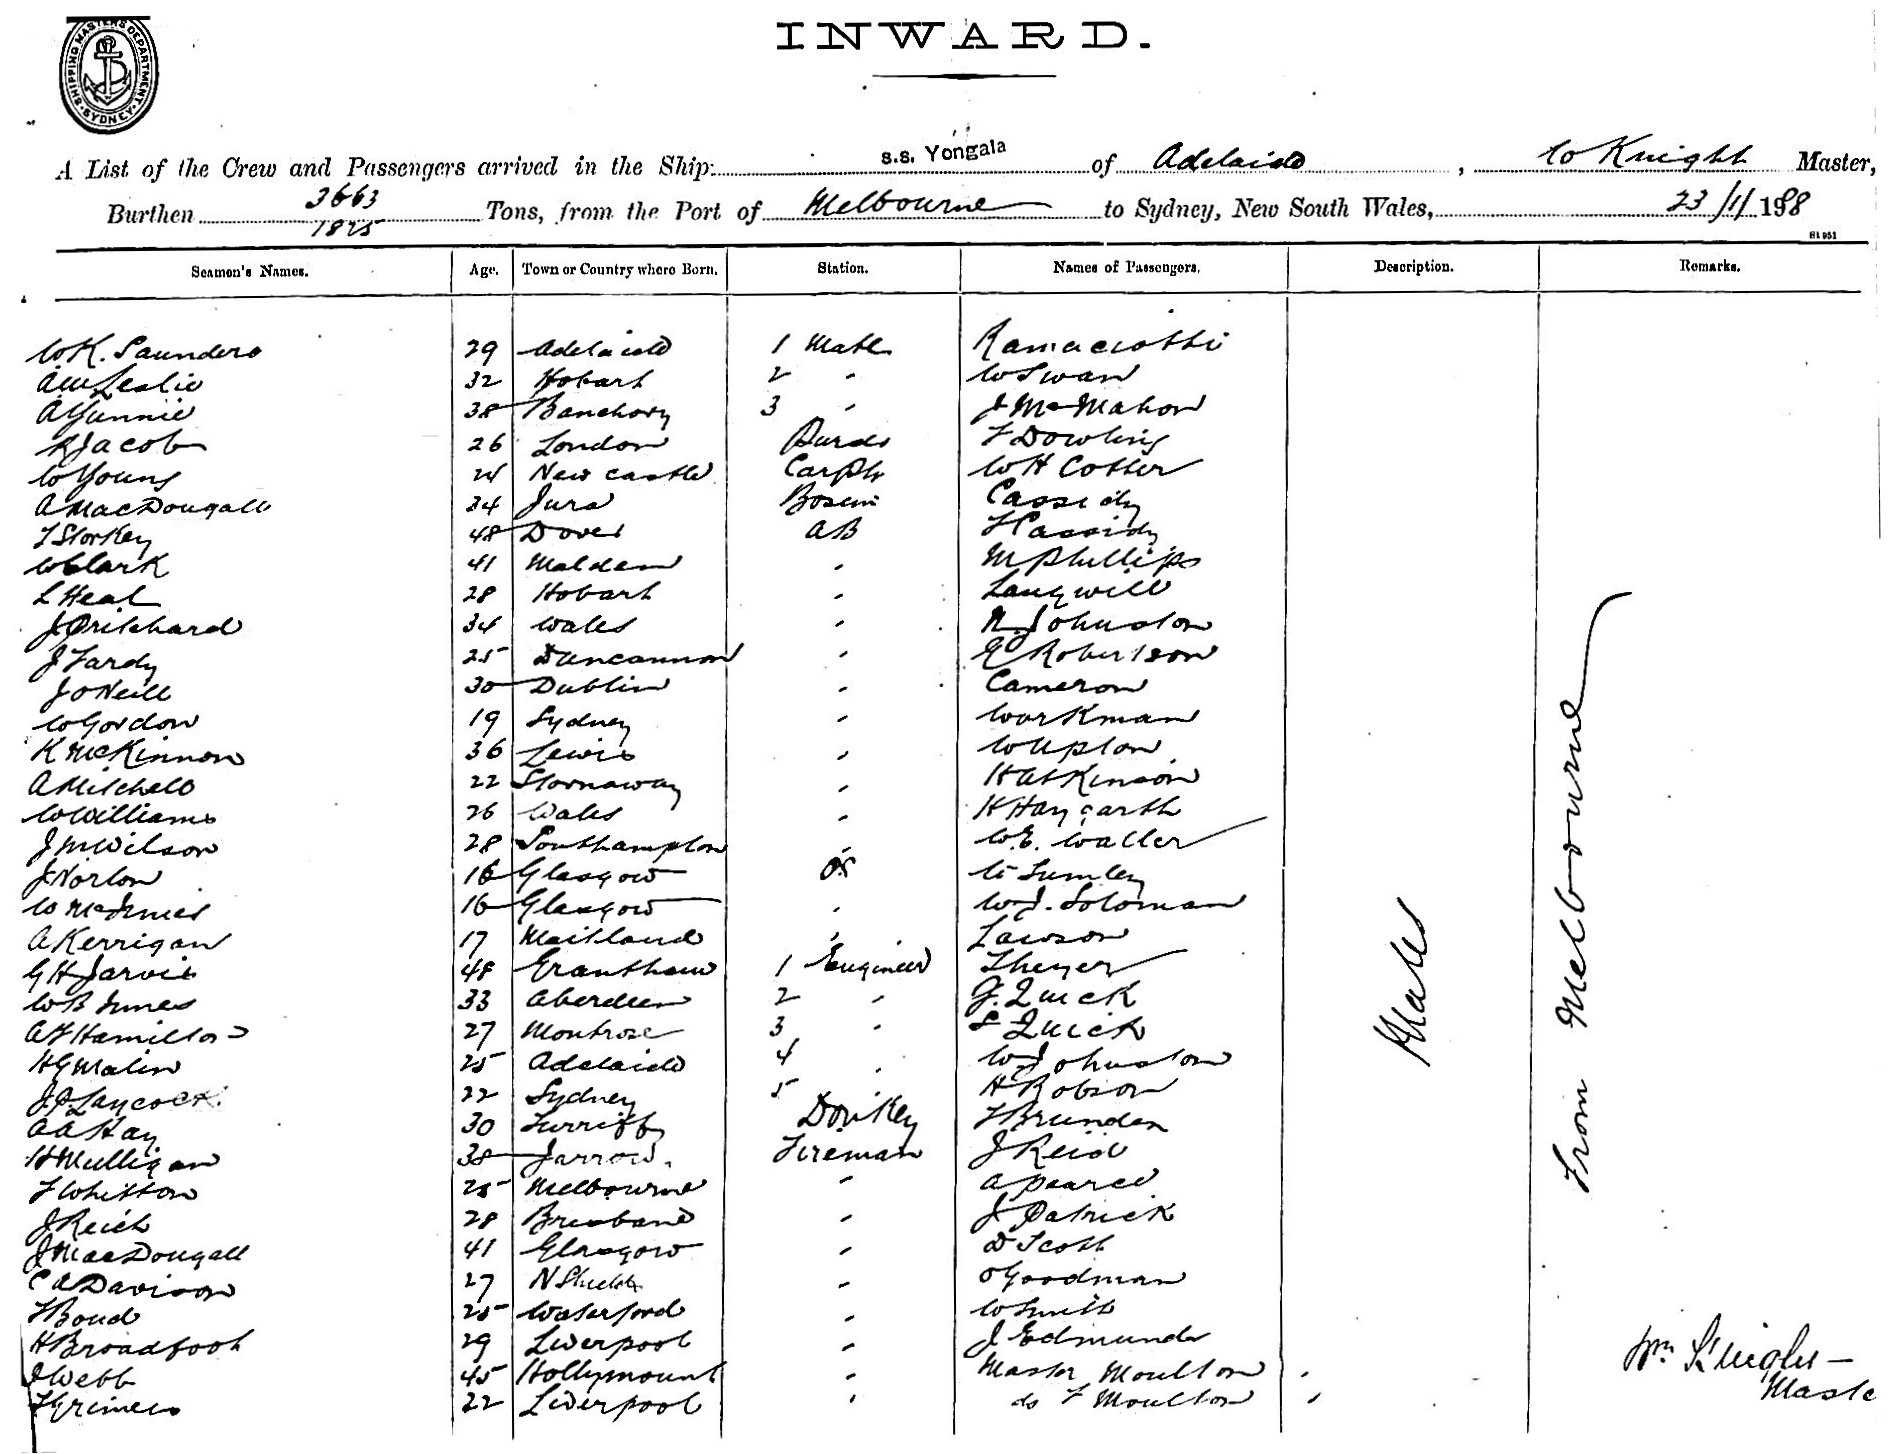 SHIPPING MASTER'S DEPARTMENT. SYDNEY.
INWARD.
A List of the Crew and Passengers arrived in the Ship: s.s. Yongala of Adelaide, W Knight Master,
Burthen 3663 Tons, from the Port of Melbourne to Sydney, New South Wales, 23/11/ 198
1825
Seamen's Names. Age. Town or Country where Born. Station. Names of Passengers. Description. Remarks.
W K. Saunders 29 Adelaide 1 Mate Ramaciotti
A W Leslie 32 Hobart 2 " W Swan
A Yunnie 38 Banchory 3 " J McMahon
R Jacob 26 London Purser F Dowling
W Young 24 Newcastle Carptr W H Cotter
A MacDougall 34 Jura Bosun Cassidy
T Storkey 48 Dover AB F Cassidy
W Clark 41 Malden " M Phillips
L Heal 28 Hobart " Langwill
J Pritchard 34 Wales " N Johnston
J Fardy 25 Duncannon " E Robertson
J O Neill 30 Dublin " Cameron
W Gordon 19 Sydney " Workman
K McKinnon 36 Lewis " W Upton
A Mitchell 22 Stornaway " H Atkinson
W Williams 26 Wales " H Haygarth
J M Wilson 28 Southampton " W. E. Waller
J Norton 16 Glasgow OS Lumley
W McInnes 16 Glasgow " W J. Soloman
A Kerrigan 17 Maitland " Lawson
G H Jarvis 48 Grantham 1 Engineer Theyer
W B Innes 33 Aberdeen 2 " J. Quick
A F Hamilton 27 Montrose 3 " L Quick
H G Malin 25 Adelaide 4 " W Johnston
J J Laycock 22 Sydney 5 H Robson
A A Hay 30 Turriffy Donkey F Brunden
H Mulligan 38 Jarrow. Fireman J Reid
F Whitton 25 Melbourne " A Pearce
J Reich 28 Brisbane " J Patrick
J MacDougall 41 Glasgow " D Scott
C A Davison 27 N Shields " O Goodman
F Bond 25 Waterford " W Smith
H Broadfoot 29 Liverpool " J Edmunds
J Webb 45 Hollymount " Master Moulton
T Grimes 22 Liverpool " do F Moulton
Males
From Melbourne
Wm Knight
Maste